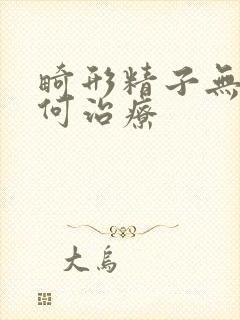 畸形精子無
何治療
大鳥